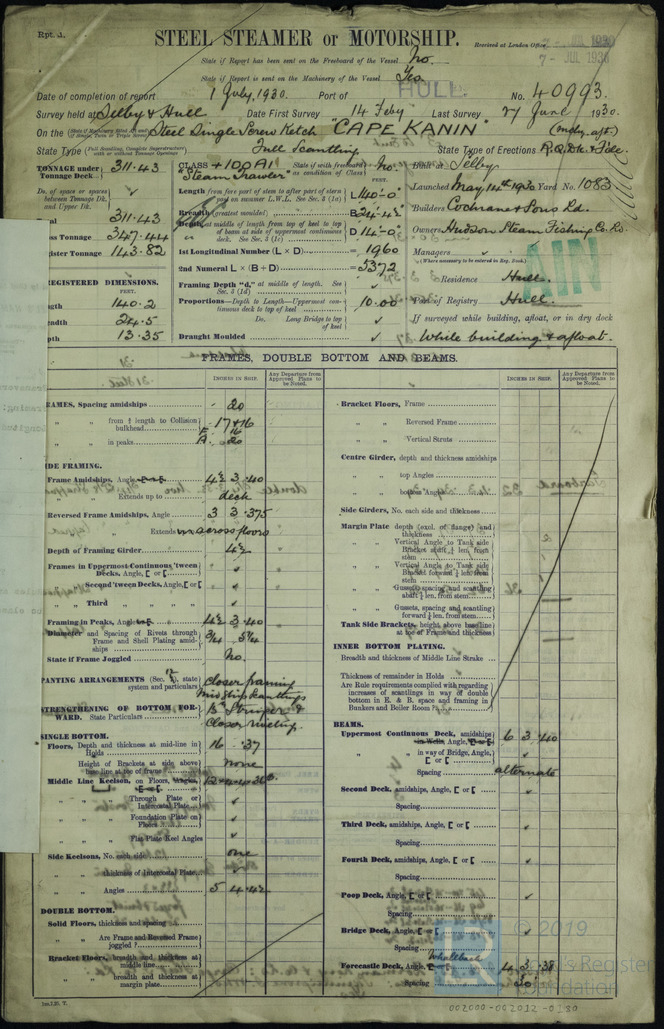 Rpt. 4.
STEEL STEAMER or MOTORSHIP.
Received at London Office
7- JUL 1930
State if Report has been sent on the Freeboard of the Vessel No.
State if Report is sent on the Machinery of the Vessel Yes
HULL.
Date of completion of report 1 July, 1930. Port of No. 40993.
Survey held at Selby & Hull Date First Survey 14 Feby Last Survey 27 June 1930.
On the Steel Single Screw Ketch "CAPE KANIN" (mchy. aft.)
State Type Full Scantling State Type of Erections R.Q.Dk. & Fcle.
TONNAGE under Tonnage Deck 311.43
CLASS +100A1 State if with freeboard as condition of Class No.
"Steam Trawler"
Built at Selby
Do. of space or spaces between Tonnage Dk. and Upper Dk.
Length from fore part of stem to after part of stern post on summer L.W.L. See Sec. 3 (1a) L 140'-0"
Launched May 14th 1930 Yard No. 1083
311.43
Breadth (greatest moulded) B 24'-4½"
Builders Cochrane & Sons Ld.
Gross Tonnage 347.44
Depth, at middle of length from top of keel to top of beam at side of uppermost continuous deck. See Sec. 3 (1c) D 14'-0"
Owners Hudson Steam Fishing Co. Ld.
Register Tonnage 143.82
1st Longitudinal Number (L × D) = 1960
Managers
(Where necessary to be entered in Reg. Book.)
2nd Numeral L × (B + D) = 5372
REGISTERED DIMENSIONS.
FEET.
Framing Depth "d," at middle of length. See Sec. 3 (1d)
Residence Hull.
Length 140.2
Proportions—Depth to Length—Uppermost continuous deck to top of keel 10.00
Port of Registry Hull.
Breadth 24.5
Do. Long Bridge to top of keel
If surveyed while building, afloat, or in dry dock
Depth 13.35
Draught Moulded
While building & afloat.
FRAMES, DOUBLE BOTTOM AND BEAMS.
INCHES IN SHIP.
Any Departure from Approved Plans to be Noted.
INCHES IN SHIP.
Any Departure from Approved Plans to be Noted.
FRAMES, Spacing amidships 20
" " from ⅗ length to Collision bulkhead
" " in peaks
SIDE FRAMING.
Frame Amidships, Angle 4½ 3 .40
" " Extends up to deck
Reversed Frame Amidships, Angle 3 3 .375
" " Extends across floors
Depth of Framing Girder 4½
Frames in Uppermost Continuous 'tween Decks, Angle, [ or [
" Second 'tween Decks, Angle, [ or [
" Third " " "
Framing in Peaks, Angle 4½ 3 .40
Diameter and Spacing of Rivets through Frame and Shell Plating amidships 3/4 5¼
State if Frame Joggled No.
PANTING ARRANGEMENTS (Sec. 7), state system and particulars closer framing
midship scantlings
STRENGTHENING OF BOTTOM FORWARD. State Particulars
closer riveting
SINGLE BOTTOM.
Floors, Depth and thickness at mid-line in Holds 16 .37
Height of Brackets at side above base line at toe of frame none
Middle Line Keelson, on Floors, Angles,
" " Through Plate or Intercostal Plate
" " Foundation Plate on Floors
" " Flat Plate Keel Angles
Side Keelsons, No. each side one
" " thickness of Intercostal Plate
" " Angles 5 4 .42
DOUBLE BOTTOM.
Solid Floors, thickness and spacing
" " Are Frame and Reversed Frame joggled ?
Bracket Floors, breadth and thickness at middle line
" " breadth and thickness at margin plate
Bracket Floors, Frame
" " Reversed Frame
" " Vertical Struts
Centre Girder, depth and thickness amidships
" " top Angles
" " bottom Angles
Side Girders, No. each side and thickness
Margin Plate depth (excl. of flange) and thickness
" " Vertical Angle to Tank side Bracket abaft ¼ len. from stem
" " Vertical Angle to Tank side Bracket forward ¼ len. from stem
" " Gussets, spacing and scantling abaft ¼ len. from stem
" " Gussets, spacing and scantling forward ¼ len. from stem
Tank Side Brackets, height above base line at toe of Frame and thickness
INNER BOTTOM PLATING.
Breadth and thickness of Middle Line Strake
Thickness of remainder in Holds
Are Rule requirements complied with regarding increases of scantlings in way of double bottom in E. & B. space and framing in Bunkers and Boiler Room ?
BEAMS.
Uppermost Continuous Deck, amidships in Wells, Angle, 6 3 .40
" " in way of Bridge, Angle, [ or [
Spacing alternate
Second Deck, amidships, Angle, [ or [
Spacing
Third Deck, amidships, Angle, [ or [
Spacing
Fourth Deck, amidships, Angle, [ or [
Spacing
Poop Deck, Angle, [ or [
Spacing
Bridge Deck, Angle, [ or [
Spacing
Whaleback
Forecastle Deck, Angle, 4 3 .38
Spacing 20
© 2019
Lloyd's Register Foundation
002000-002012-0130